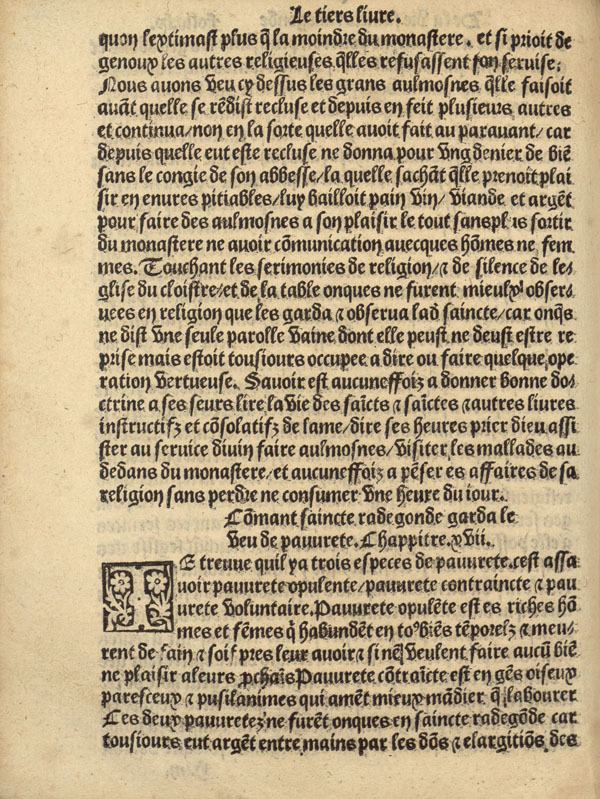 Le tiers liure.
quon lextimast plus q̃ la moindre du monastere. et si prioit de
genoux les autres religieuses q̃lles refusassent son seruise:
Nous auons veu cy dessus les grans aulmosnes q̃lle faisoit
auãt quelle se rẽdist recluse et depuis en feit plusieurs autres
et continua/non en la sorte quelle auoit fait au parauant/ car
depuis quelle eut este recluse ne donna pour vng denier de biẽ
sans le congie de son abbesse/la quelle sachãt q̃lle prenoit plai
sir en euures pitiables/luy bailloit pain vin/ viande et argẽt
pour faire des aulmosnes a son plaisir le tout sans plus sortir
du monastere ne auoir cõmunication auecques hõmes ne fem
mes. Touchant les serimonies de religion/⁊ de silence de le/
glise du cloistre/et de la table onques ne furent mieulx obser/
uees en religion que les garda ⁊ obserua lad saincte/car onq̃s
ne dist vne seule parolle vaine dont elle peust ne deust estre re
prise mais estoit tousiours occupee a dire ou faire quelque ope
ration vertueuse. Sauoir est aucuneffoiz a donner bonne do/
ctrine a ses seurs lire la vie des saĩcts ⁊ saĩctes ⁊ autres liures
instructifz ⁊ cõsolatifz de lame/dire ses heures prier dieu assi
ster au seruice diuin faire aulmosnes/visiter les mallades au
dedans du monastere/et aucuneffoiz a pẽser es affaires de sa
religion sans perdre ne consumer vne heure du iour.
Cõmant saincte radegonde garda le
veu de pauurete. Chappitre. xvii.
IE treuue quil ya trois especes de pauurete. cest assa
uoir pauurete opulente/pauurete contraincte ⁊ pau
urete voluntaire. Pauurete opulẽte est es riches hõ
mes et fẽmes q̃ habundẽt en toꝰ biẽs tẽporelz ⁊ meu/
rent de fain ⁊ soif pres leur auoir ⁊ si nẽ veulent faire aucũ biẽ
ne plaisir a leurs ꝓchaĩs Pauurete cõtraĩcte est en gẽs oiseux
paresceux ⁊ pusilanimes qui amẽt mieux mãdier q̃ labourer
Ces deux pauuretez ne furẽt onques en saincte radegõde car
tousiours eut argẽt entre mains par les dõs ⁊ elargitiõs des